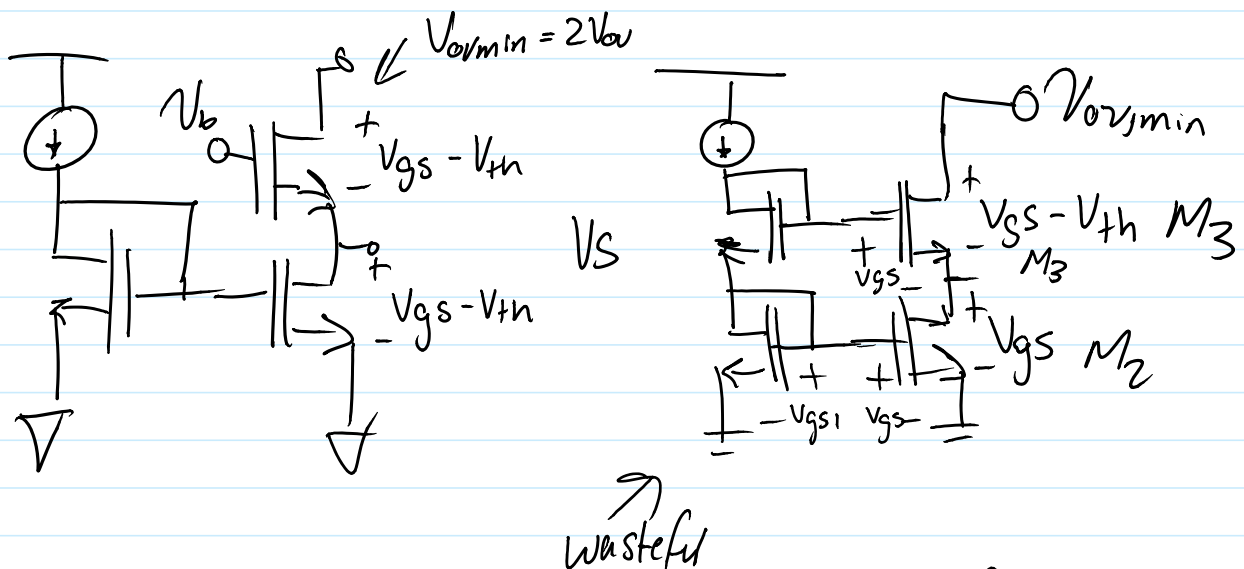 Vovmin = 2Vov
Vb
+
Vgs - Vth
-
+
Vgs - Vth
-
VS
Vov,min
+
Vgs - Vth M3
-
M3
+
Vgs
-
+
Vgs M2
-
+ +
- Vgs1 Vgs-
wasteful